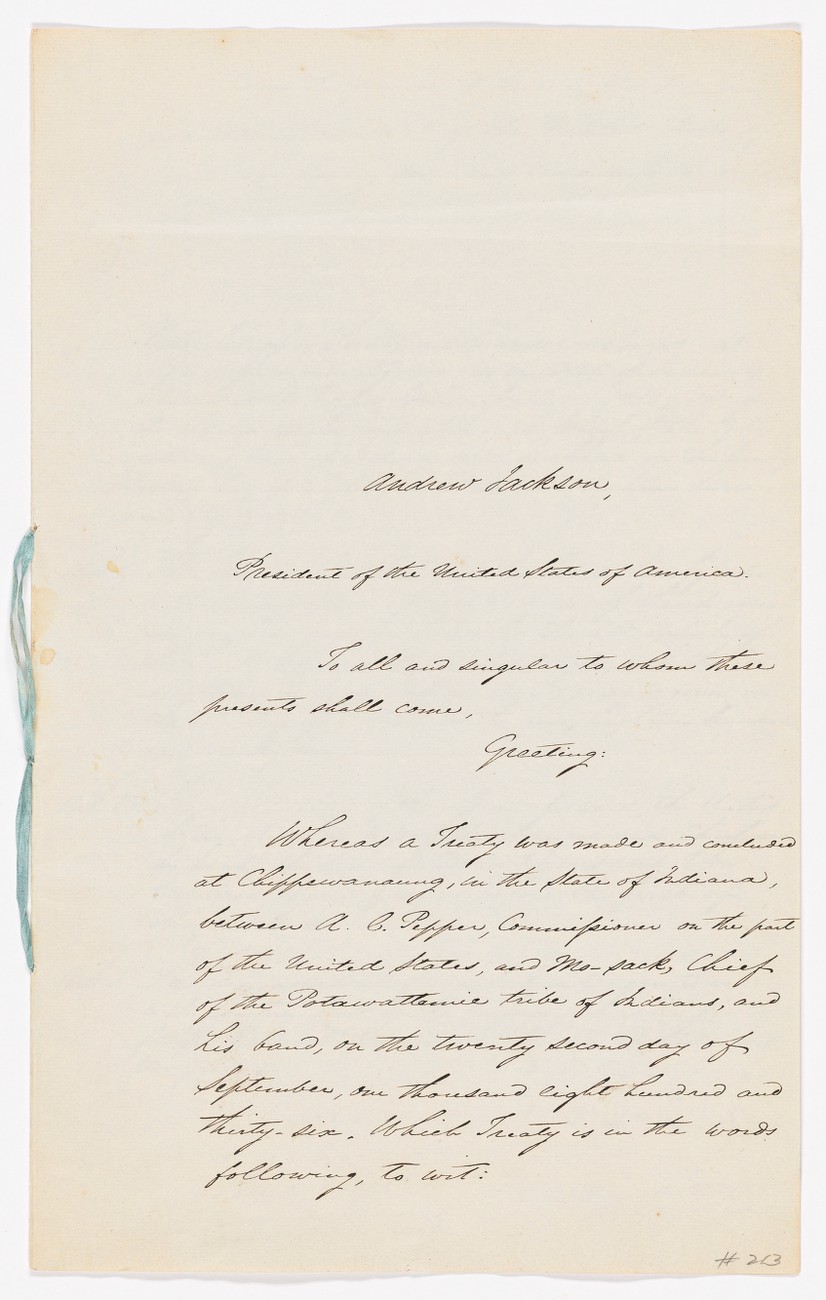 Andrew Jackson,
President of the United States of America.
To all and singular to whom these
presents shall come,
Greeting:
Whereas a Treaty was made and concluded
at Chippewanaung, in the State of Indiana,
between A. C. Pepper, Commissioner on the part
of the United States, and Mo-sack, Chief
of the Potawattamie tribe of Indians, and
his band, on the twenty second day of
September, one thousand eight hundred and
thirty-six. Which Treaty is in the words
following, to wit:
# 213